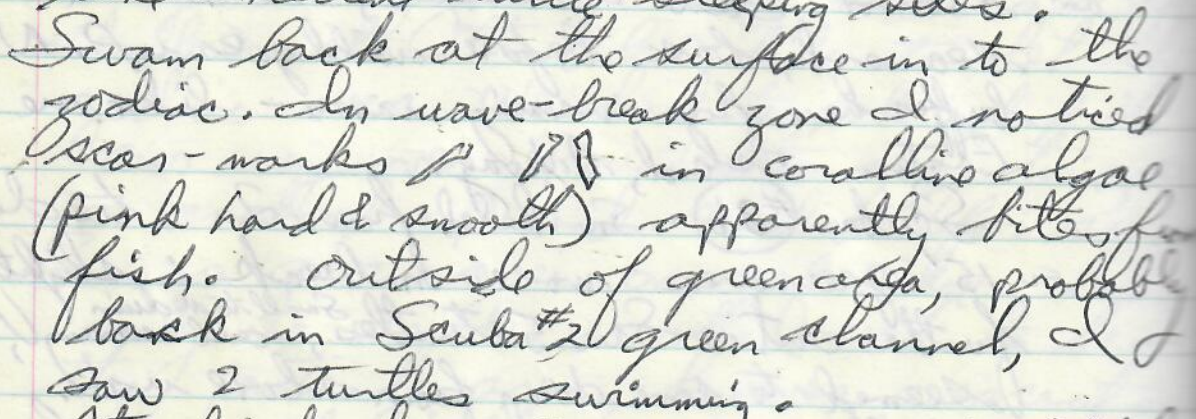 sleeping sites.
Swam back at the surface in to the
zodiac. In wave-break zone I noticed
scar-marks in coralline algae
(pink hard & smooth) apparently bites
fish. Outside of green area, probably
back in Scuba #2 green channel, I
saw 2 turtles swimming.